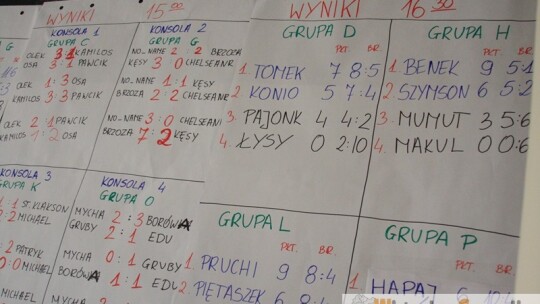 WYNIKI 15 00
KONSOLA 1
GRUPA C
OLEK 3:1 KAMILOS
OSA 3:1 PAWCIK
1:3 OSA
KAMILOS 3:3 PAWCIK
OLEK 2:1 PAWCIK
1:2 OSA
KONSOLA 2
GRUPA G
NO-NAME 2:2 BRZOZA
KĘSY 3:0 CHELSEANR
NO-NAME 1:1 KĘSY
BRZOZA 2:2 CHELSEANR
NO-NAME 3:0 CHELSEANI
BRZOZA 7:2 KĘSY
KONSOLA 3
GRUPA K
1:1 ST. KLAKSON
2:2 MICHAEL
:2 PATRYK
0:0 MICHAEL
KONSOLA 4
GRUPA O
MYCHA 2:3 BORÓWA
GRUBY 2:1 EDU
MYCHA 0:1 GRUBY
BORÓWA 1:1 EDU
MYCHA
WYNIKI 16 30
GRUPA D
PKT. BR.
1. TOMEK 7 8:5
2. KONIO 5 7:4
3. PAJONK 4 4:2
4. ŁYSY 0 2:10
GRUPA H
PKT. BR.
1. BENEK 9 5:1
2. SZYMSON 6 5:2
3. MUMUT 3 5:6
4. MAKUL 0 0:6
GRUPA L
PKT. BR.
1. PRUCHI 9 8:4
2. PIĘTASZEK 6 8:4
GRUPA P
PKT. BR.
1. HAPAJ 6